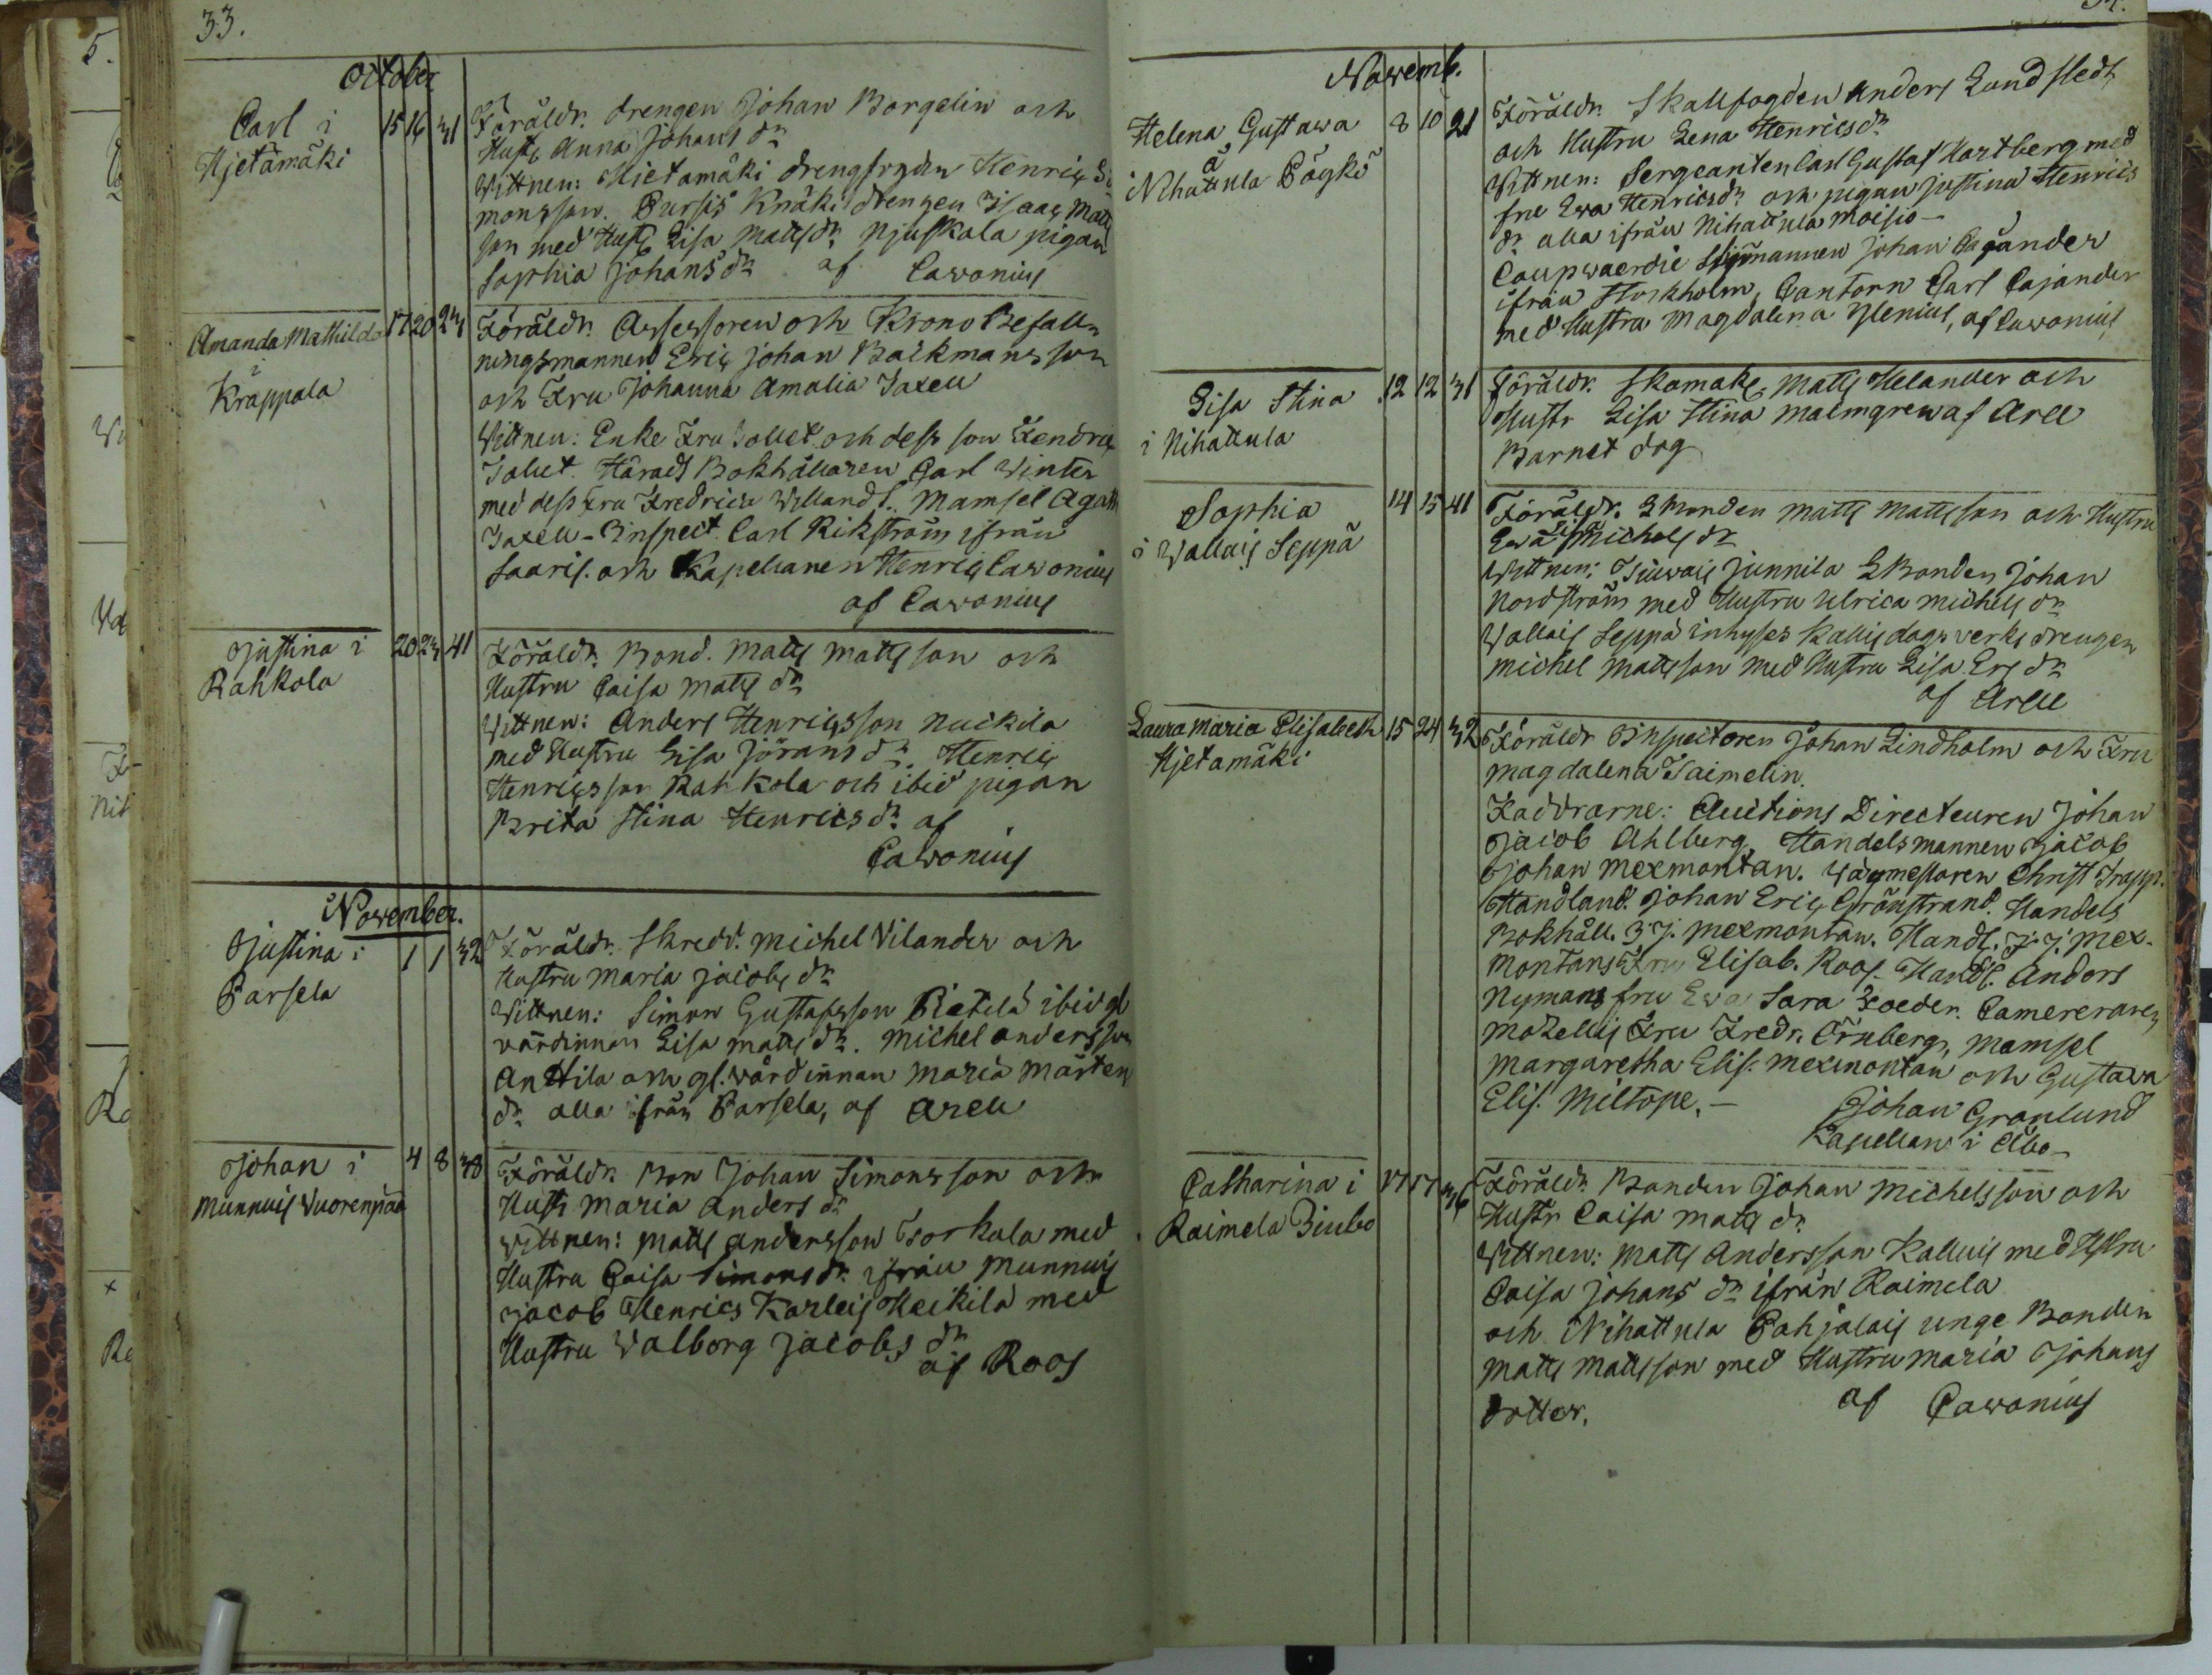 33.
October
Carl i
Hjetämäki
15 16 31
Föräldr. drengen Johan Borgelin och
Hustr. Anna Johans dr
Wittnen: Hietamäki drengfogden Henric Si
monsson. Pursis Knäki drengen Isaac Matts
son med Hustr. Lisa Matts dr. Njuskala pigan
Sophia Johans dr af Cavonius
Amanda Mathilda
i
Krappala
17 20 23
Föräldr. Assessoren och Krono Befall-
ningsmannen Eric Johan Backmansson
och Fru Johanna Amalia Taxell
Wittnen: Enke Fru Jollet och dess son Fendric
Jollet. Härads Bokhållaren Carl Winter
med dess Fru Fredrica Willands. Mamsel Agath
Taxell - Inspect. Carl Rikström ifrån
Saaris. och Kapellanen Henric Cavonius
af Cavonius
Justina i
Rahkola
20 23 41
Föräldr. Bond. Matts Mattsson och
Hustru Caisa Matts dr
Wittnen: Anders Henricsson Nuckila
med Hustru Lisa Jörans dr. Henric
Henricsson Rahkola och ibid pigan
Brita Stina Henrics dr af
Cavonius
November.
Justina i
Parsela
1 1 32
Föräldr. Skredd. Michel Vilander och
Hustru Maria Jacobs dr
Wittnen: Simon Gustafsson Pietilä ibid gl
värdinnan Lisa Matts dr. Michel Andersson
Anttila och gl. värdinnan Maria Mårtens
dr alla ifrån Parsela, af Arell
Johan i
Munnuis Vuorenpää
4 8 38
Föräldr. Bon Johan Simonsson och
Hustr Maria Anders dr
Wittnen: Matts Andersson Torkala med
Hustru Caisa Simons dr ifrån Munnuis
Jacob Henrics Karleis Heikilä med
Hustru Walborg Jacobs dr
af Roos
Novemb.
Helena Gustava
å
Nihattula Pägkö
8 10 21
Föräldr. Skallfogden Anders Lundstedt
och Hustru Lena Henricsdr
Wittnen: Sergeanten Carl Gustaf Hartberg med
fru Ewa Henricsdr och pigan Justina Henrics
dr alla ifrån Nihattula Moisio -
Coupwaerdie Styrmannen Johan Cajander
ifrån Stockholm, Cantorn Carl Cajander
med Hustru Magdalena Ylenius, af Cavonius
Lisa Stina
i Nihattula
12 12 31
Föräldr. Skomak. Matts Helander och
Hustr Lisa Stina Malmgren af Arell
Barnet dog
Sophia
i Wallais Seppä
14 15 41
Föräldr. LBonden Matts Mattsson och Hustru
Ewa Michels dr
Wittnen: Junnila LBonden Johan
Nordström med Hustru Ulrica Michels dr
Wallais Seppä inhyses Kallis dagsverks drengen
Michel Mattsson med Hustru Lisa Ers dr
af Arell
Laura Maria Elisabeth
Hjetamäki
15 24 32
Föräldr Inspectoren Johan Lindholm och Fru
Magdalena Taimelin.
Faddrarne: Auctions Directeuren Johan
Jacob Ahlberg, Handelsmannen Jacob
Johan Mexmontan. Vågmestaren Christ Trapp.
Handland. Johan Eric Grönstrand. Handels
Bokhåll. I. J. Mexmontan. Handl. J. J. Mex-
montans Fru Elisab. Roos. Handl. Anders
Nymans fru Ewa Sara Zoeder. Camereraren
Mozellis Fru Fredr. Örnberg, Mamsel
Margaretha Elis. Mexmontan och Gustava
Elis. Miltope. -
Johan Granlund
Kapellan i Åbo -
Catharina i
Raimela Biubo
17 17 36
Föräldr. Bonden Johan Michelsson och
Hustr Caisa Matts dr
Wittnen: Matts Andersson Kalluis med Hstru
Caisa Johans dr ifrån Raimela
och Nihattula Pahjalais unge Bonden
Matts Mattsson med Hustru Maria Johans
dotter. af Cavonius